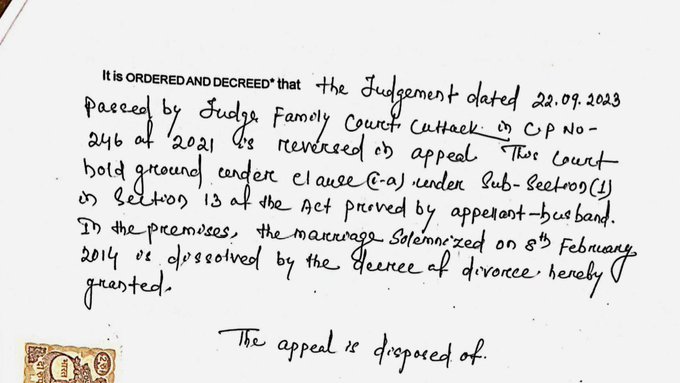 It is ORDERED AND DECREED* that the Judgement dated 22.09.2023
passed by Judge Family Court, Cuttack in C.P No-
246 of 2021 is reversed in appeal This Court
hold ground under clause (i-a) under Sub-Section (1)
in Section 13 of the Act proved by appellant-husband.
In the premises, the marriage Solemnized on 8th February
2014 is dissolved by the decree of divorce, hereby
granted.
The appeal is disposed of.